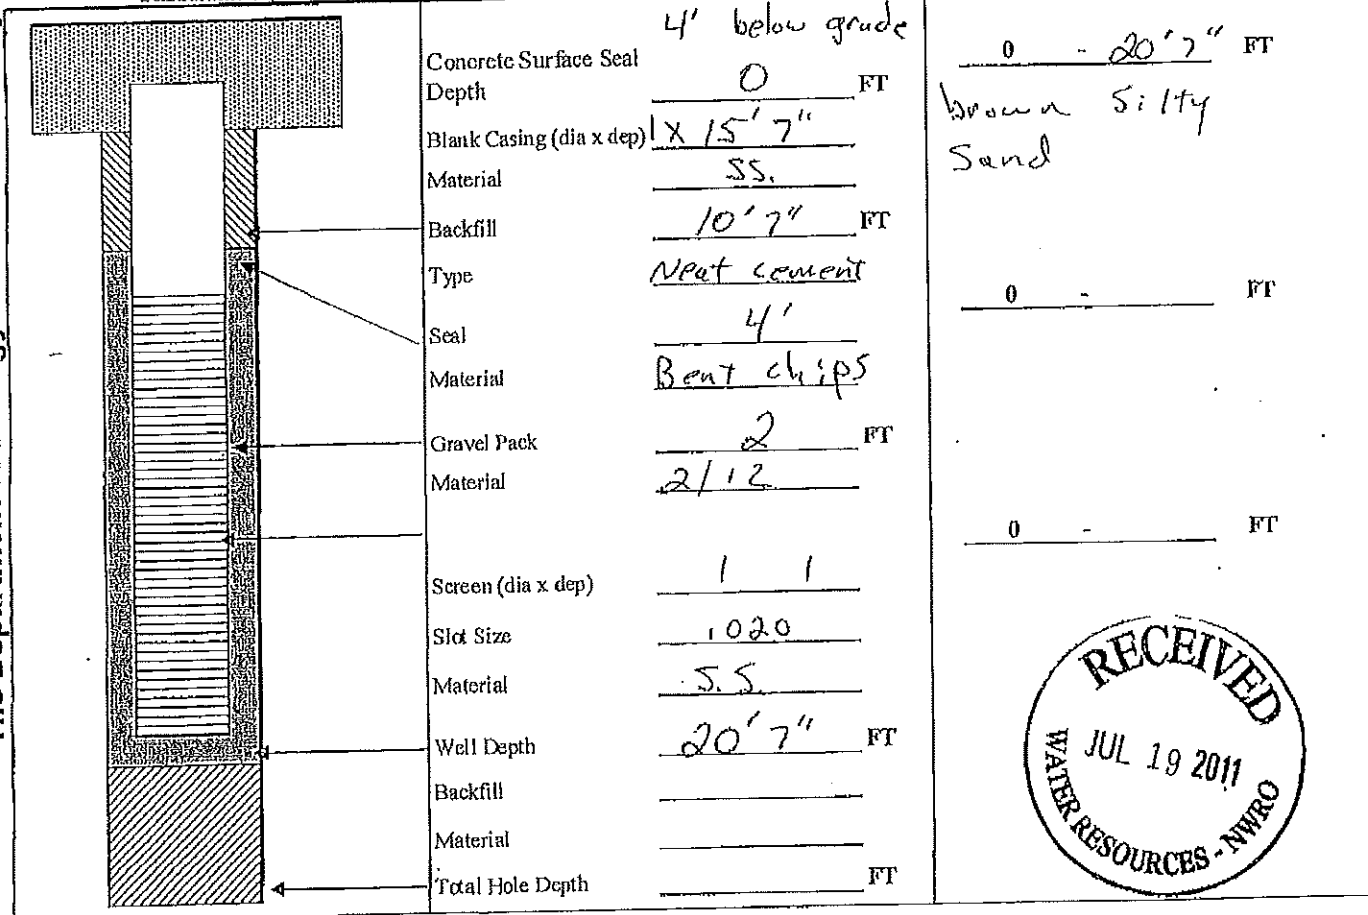 4' below grade
Concrete Surface Seal
Depth 0 FT
Blank Casing (dia x dep) 1 X 15' 7"
Material SS.
Backfill 10' 7" FT
Type Neat cement
Seal 4'
Material Bent chips
Gravel Pack 2 FT
Material 2/12
Screen (dia x dep) 1 1
Slot Size .020
Material S.S.
Well Depth 20' 7" FT
Backfill
Material
Total Hole Depth FT
0 - 20' 7" FT
brown Silty
Sand
0 - FT
0 - FT
RECEIVED
JUL 19 2011
WATER RESOURCES - NWRO